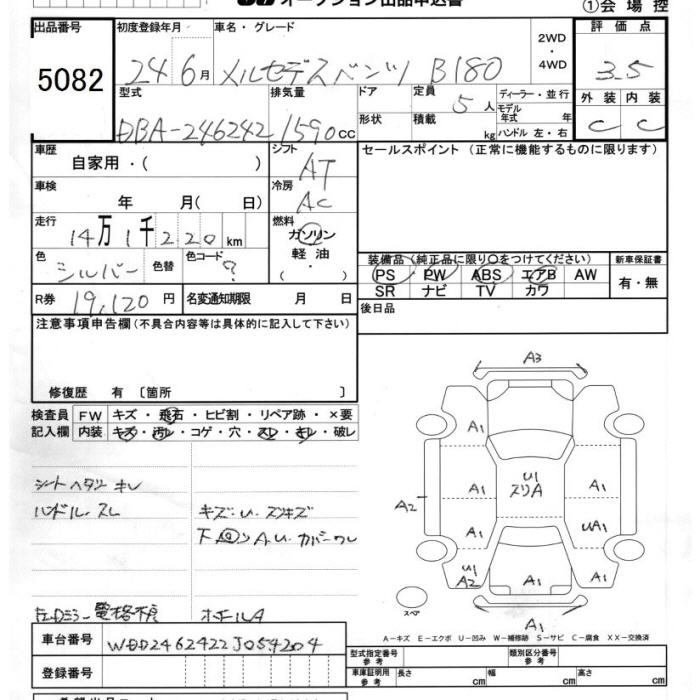 オークション出品申込書
①会場控
出品番号 初度登録年月 車名・グレード 2WD・4WD 評価点
5082 24 6月 メルセデスベンツ B180 3.5
型式 排気量 ドア 定員 5人 ディーラー・並行 外装 内装
DBA-246242 1590cc 形状 積載 kg モデル年式 年 ハンドル 左・右 C C
車歴 シフト セールスポイント (正常に機能するものに限ります)
自家用・( ) AT
車検 冷房
年 月( 日) AC
走行 燃料
14万1千220km ガソリン
軽油
・( )
色 色替 色コード 装備品 (純正品に限り○をつけてください) 新車保証書
シルバー ? PS PW ABS エアB AW 有・無
SR ナビ TV カワ
R券 19,120円 名変通知期限 月 日 後日品
注意事項申告欄(不具合内容等は具体的に記入して下さい)
修復歴 有 〔箇所 〕
検査員 FW キズ・飛石・ヒビ割・リペア跡・×要
記入欄 内装 キズ・汚レ・コゲ・穴・スレ・キレ・破レ
シートヘタリ キレ
ハンドルスレ キズ・U・スリキズ
下回りAU カバーワレ
ドアミラー電格不良 ホイールA
A3
A1 A1
U1
スリA
A1 A1
A2
A1 UA1
U1
A2 A1
A1
スペア
A-キズ E-エクボ U-凹み W-補修跡 S-サビ C-腐食 XX-交換済
車台番号 WDD2462422J054204
型式指定番号 参考 類別区分番号 参考
登録番号 車庫証明用 参考 長さ cm 幅 cm 高さ cm